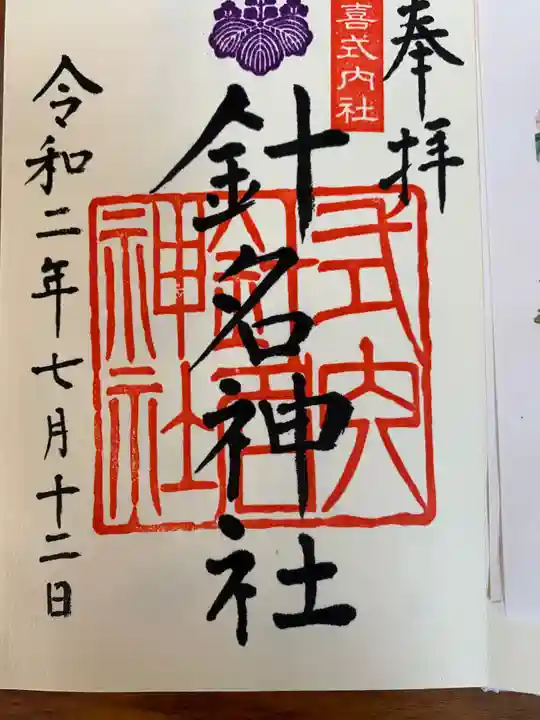 奉拝
喜式内社
針名神社
式内
針名
神社
令和二年七月十二日